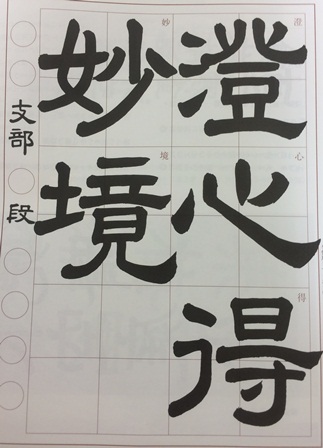 澄心得
妙境
澄
心
得
妙
境
支部
段